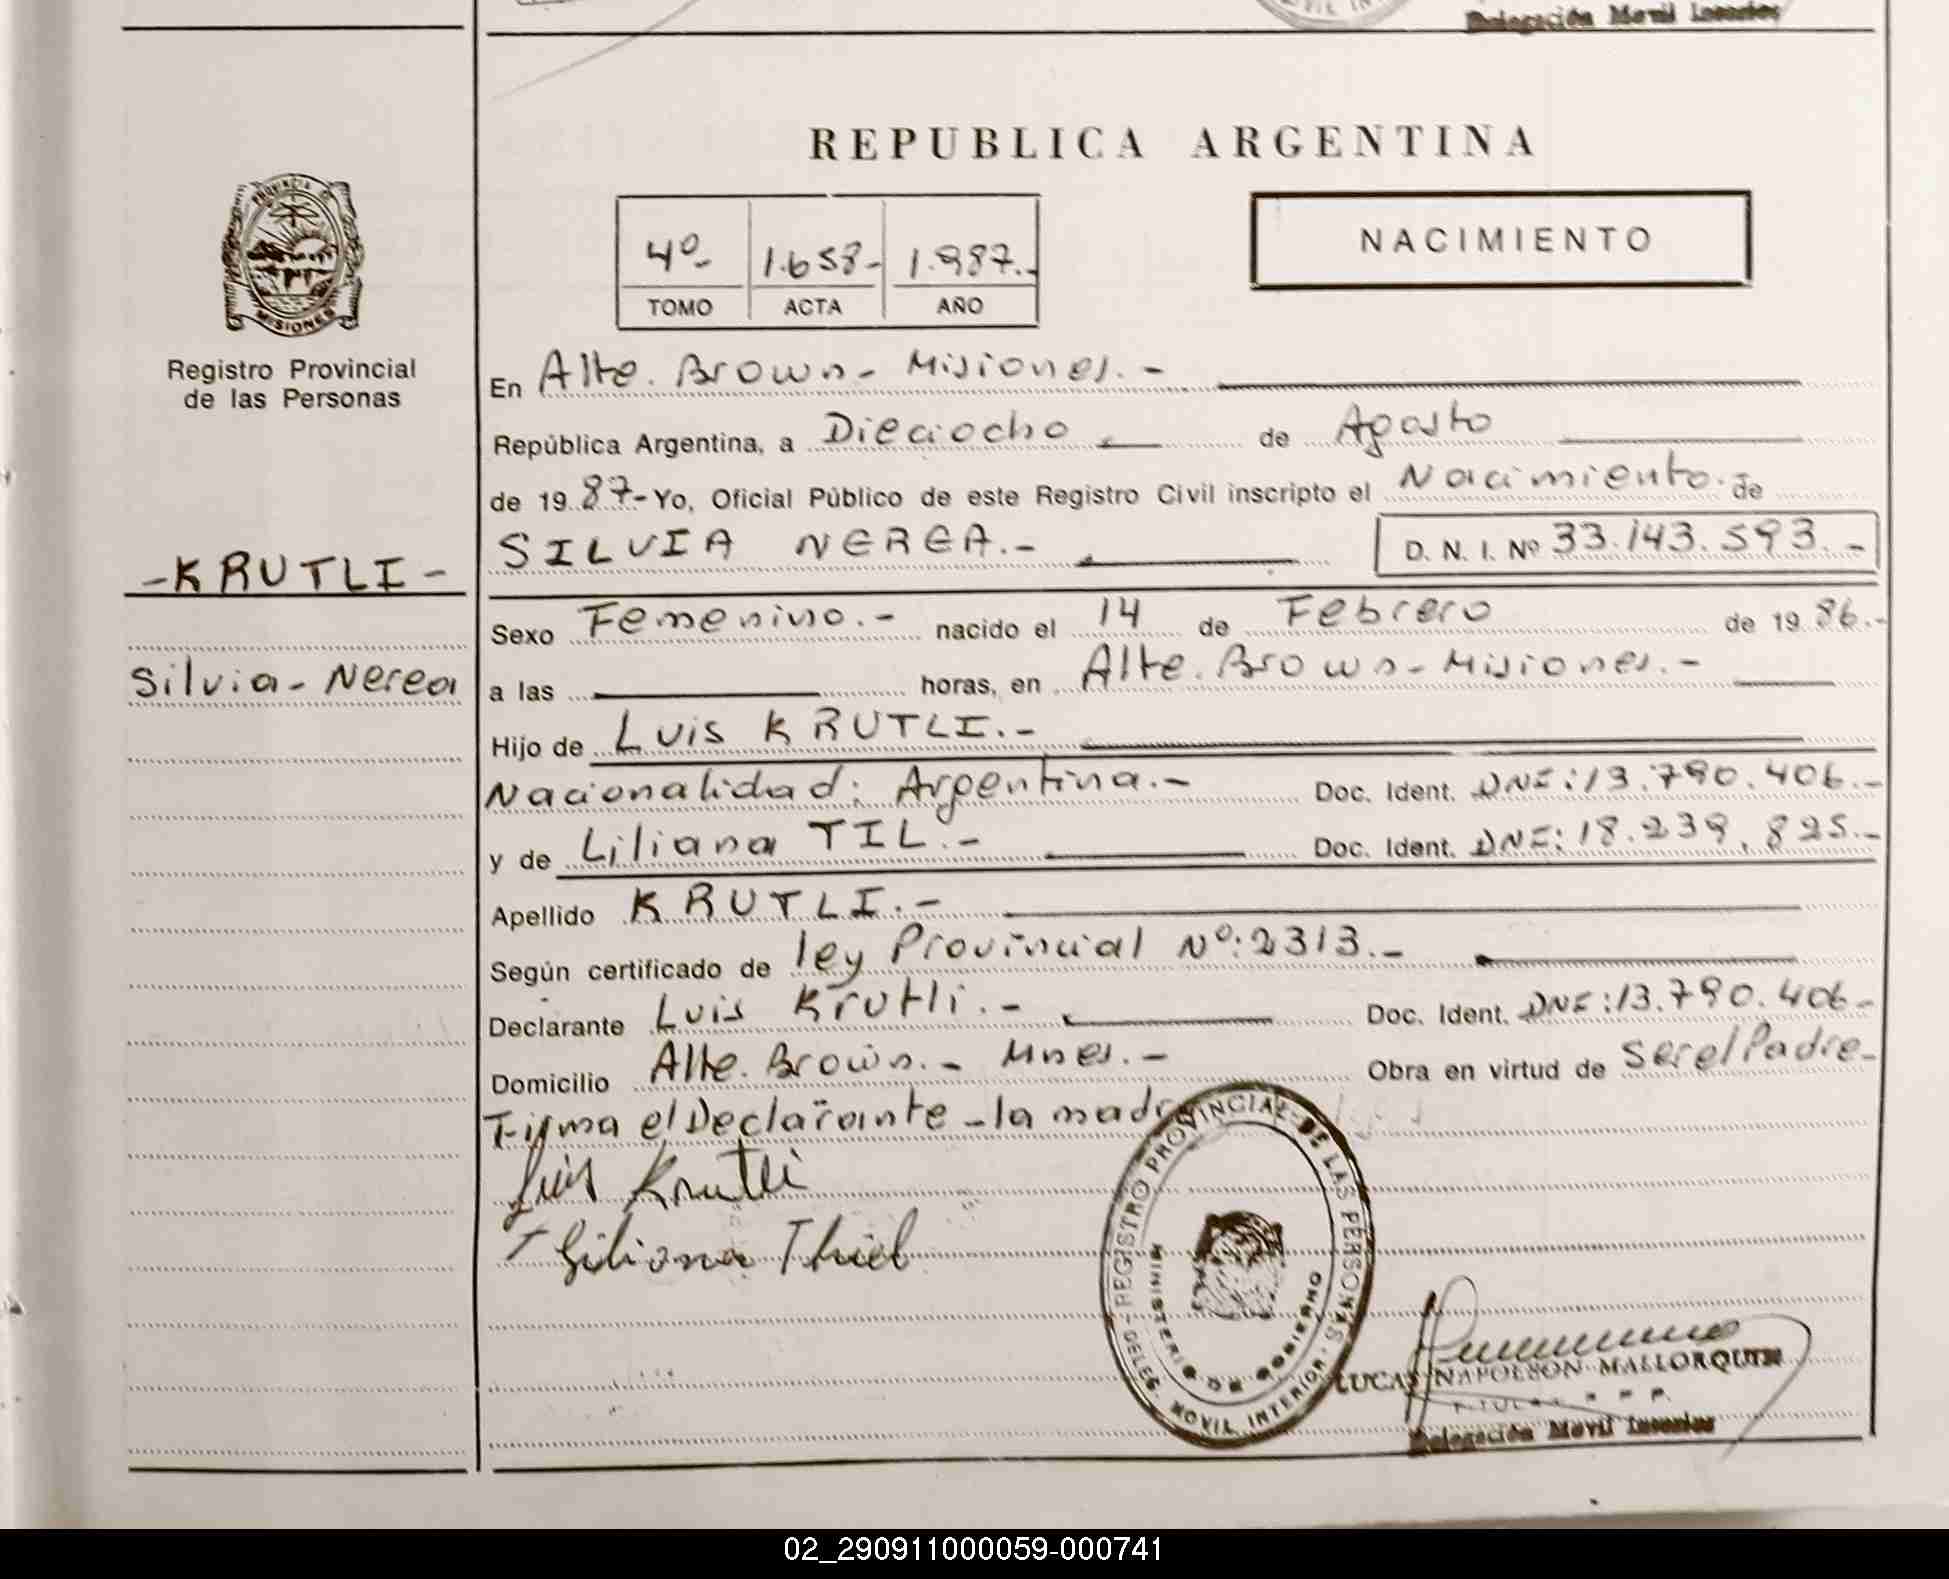 Delegación Movil Interior
REPUBLICA ARGENTINA
PROVINCIA DE
MISIONES
Registro Provincial
de las Personas
-KRUTLI-
Silvia-Nerea
4º- 1.658- 1.987.-
TOMO ACTA AÑO
NACIMIENTO
En Alte. Brown- Misiones.-
República Argentina, a Dieciocho de Agosto
de 19 87- Yo, Oficial Público de este Registro Civil inscripto el Nacimiento. de
SILVIA NEREA.- D. N. I. Nº 33.143.593.-
Sexo Femenino.- nacido el 14 de Febrero de 19 86.-
a las horas, en Alte. Brown-Misiones.-
Hijo de Luis KRUTLI.-
Nacionalidad: Argentina.- Doc. Ident. DNI: 13.790.406.-
y de Liliana TIL.- Doc. Ident. DNI: 18.239.825.-
Apellido KRUTLI.-
Según certificado de ley Provincial Nº: 2313.-
Declarante Luis Krutli.- Doc. Ident. DNI: 13.790.406-
Domicilio Alte. Brown.- Mnes.- Obra en virtud de Ser el Padre-
Firma el Declarante-la madre
Luis Krutli
Liliana Thiel
REGISTRO PROVINCIAL DE LAS PERSONAS
MINISTERIO DE GOBIERNO
DELEG. MOVIL INTERIOR
LUCAS NAPOLEON MALLORQUIN
TITULAR
Delegación Movil Interior
02_290911000059-000741